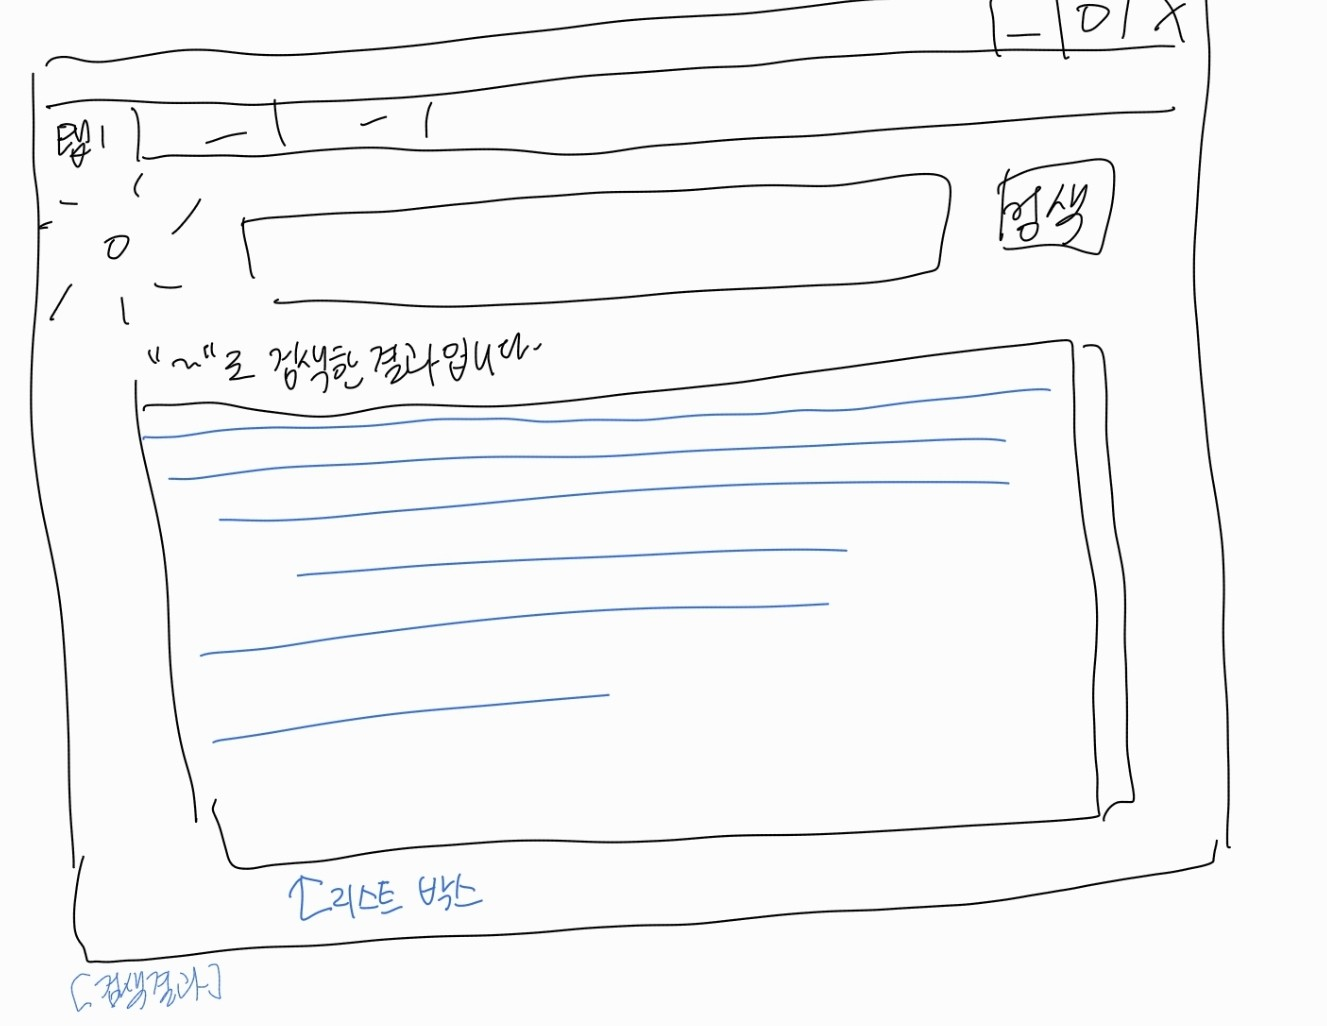 _ ㅁ X
탭1
검색
"~"로 검색한 결과입니다.
↑리스트 박스
[검색결과]